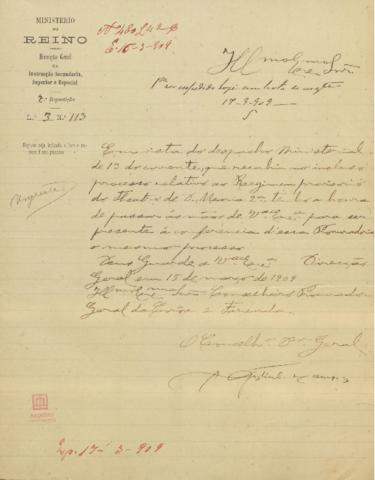 MINISTERIO
DO
REINO
Direcção Geral
da
Instrucção Secundaria,
Superior e Especial
2.ª Repartição
L.º 3 N.º 113
Nº 480 L 42-B
E. 16-3-909
Illmo e Exmo Snr
expedido hoje
17-3-909
Urgente
Em vista do despacho Ministerial
de 13 do corrente, que recahiu no incluso
processo relativo ao Regimen provisorio
do Theatro de D. Maria 2.ª, tenho a honra
de passar ás mãos de V. Exª para ser
presente á conferencia d'essa Procuradoria
o mesmo processo.
Deus Guarde a V. Exª Direcção
Geral em 15 de março de 1909
Illmo e Exmo Snr. Conselheiro Procurador
Geral da Corôa e Fazenda.
O Conselhº Dor Geral
Exp. 17-3-909